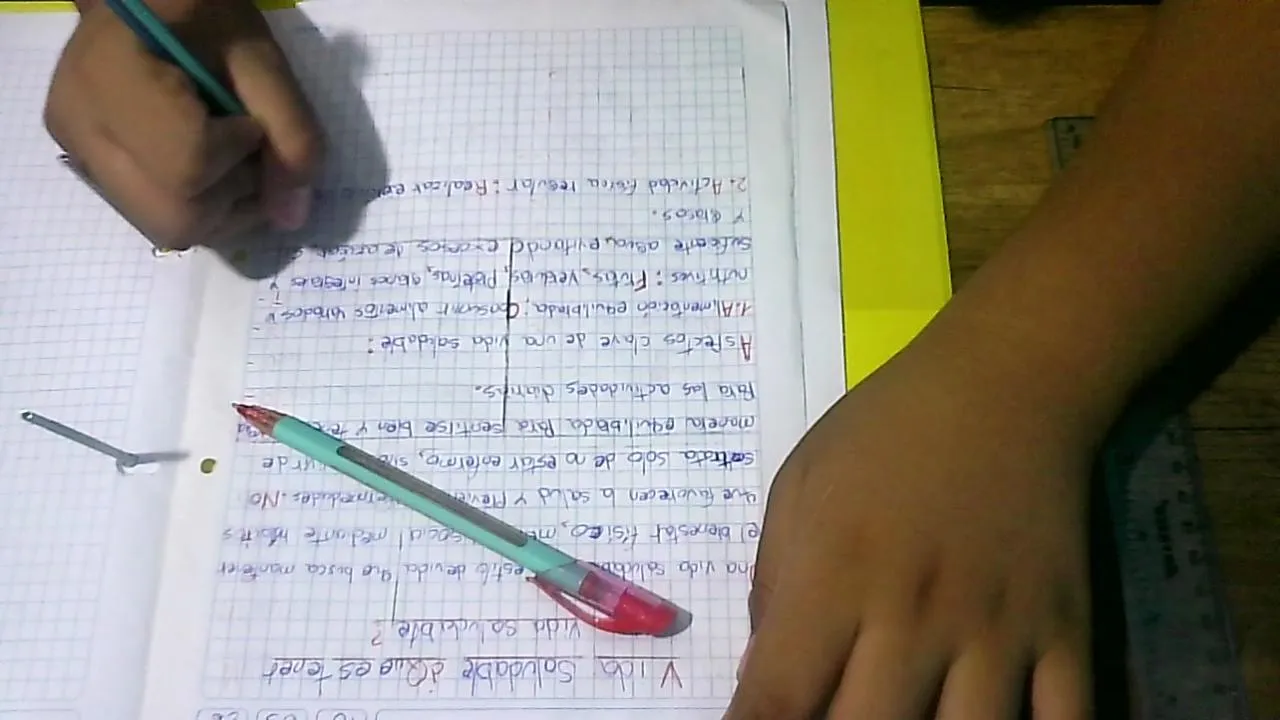 Vida Saludable ¿Que es tener
Vida saludable?
Una vida saludable estilo de vida que busca mantener
el bienestar físico, social mediante
que favorecen la salud y No
solo de no estar enfermo, de
manera equilibrada para sentirse bien y
Para las actividades diarias.
Aspectos clave de una vida saludable:
1. Alimentación equilibrada: Consumir alimentos variados y
nutritivos: Frutas, Proteínas, granos integrales y
suficiente agua, evitando excesos de
y grasos.
2. Actividad física regular: Realizar